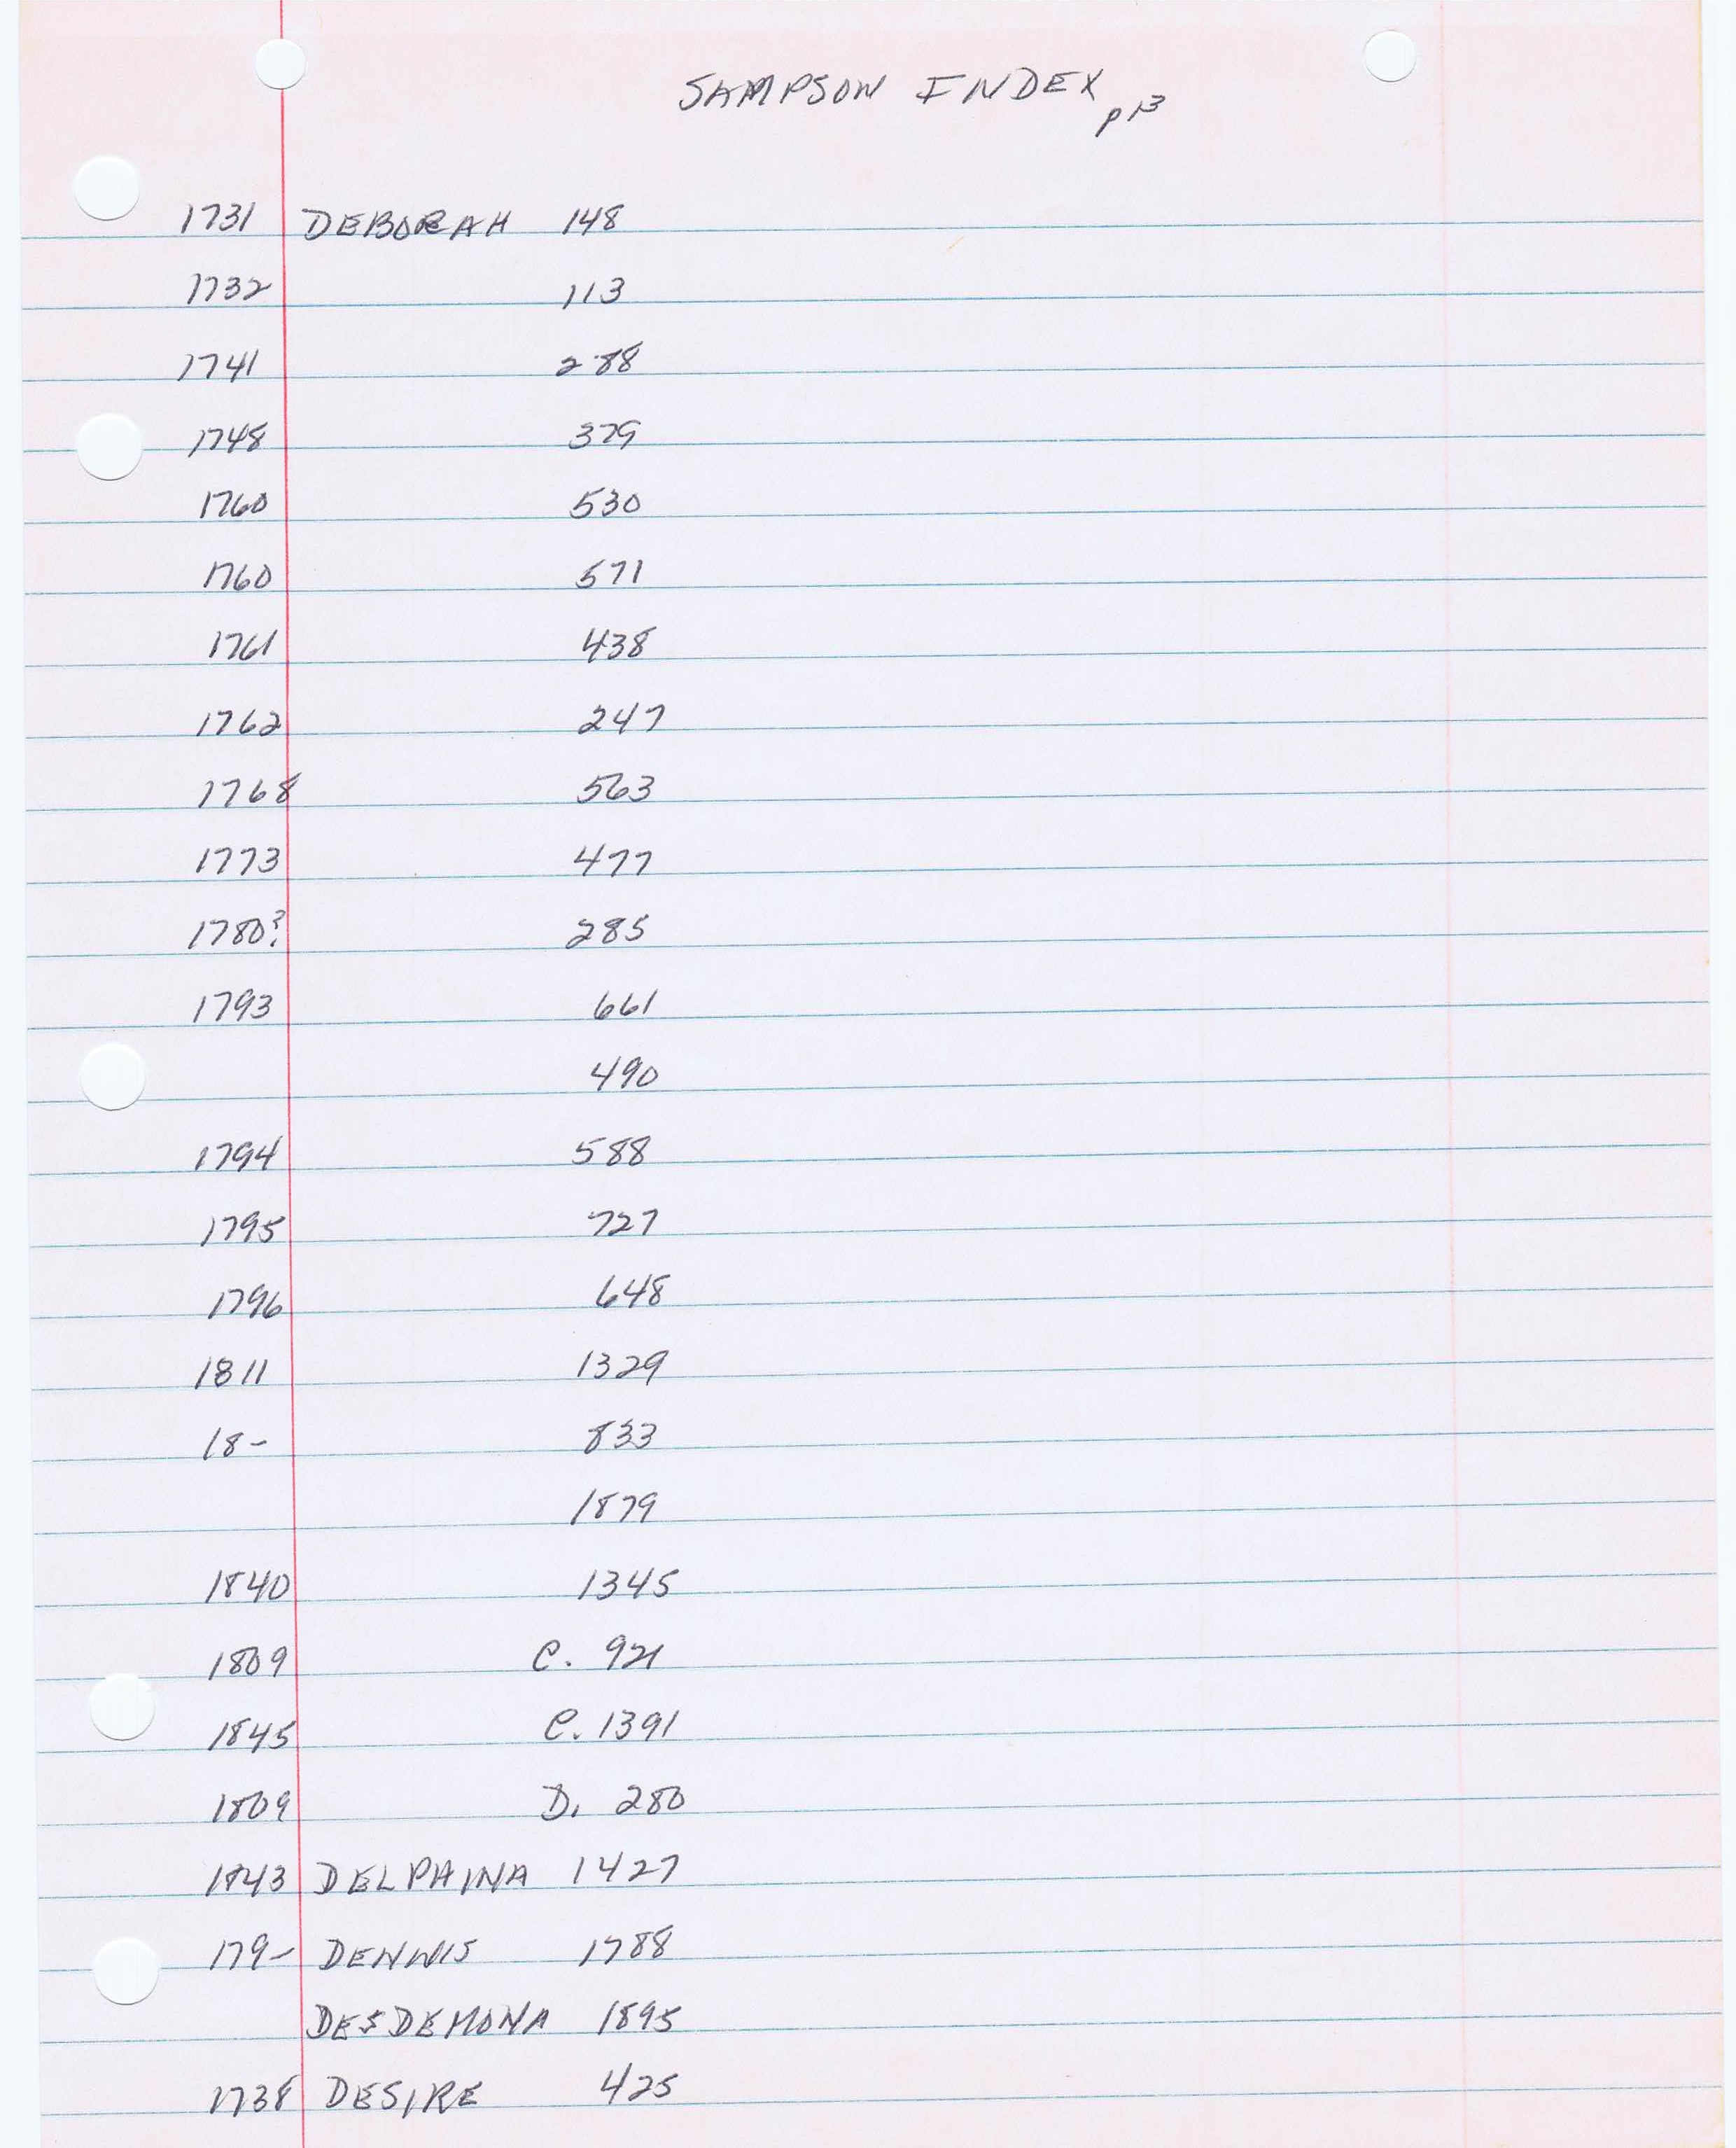 SAMPSON INDEX p 13
1731 DEBORAH 148
1732 113
1741 288
1748 379
1760 530
1760 571
1761 438
1762 247
1768 563
1773 477
1780? 285
1793 661
490
1794 588
1795 727
1796 648
1811 1329
18- 833
1879
1840 1345
1809 C. 921
1845 C. 1391
1809 D. 280
1843 DELPHINA 1427
179- DENNIS 1788
DESDEMONA 1895
1738 DESIRE 425